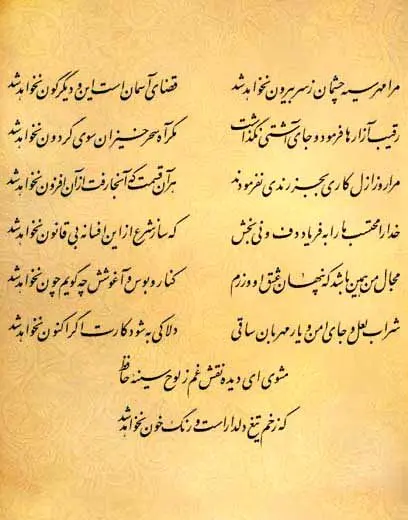 مرا مهر سیه چشمان ز سر بیرون نخواهد شد قضای آسمان است این و دیگرگون نخواهد شد
رقیب آزارها فرمود و جای آشتی نگذاشت مگر آه سحرخیزان سوی گردون نخواهد شد
مرا روز ازل کاری بجز رندی نفرمودند هر آن قسمت که آنجا رفت از آن افزون نخواهد شد
خدا را محتسب ما را به فریاد دف و نی بخش که ساز شرع از این افسانه بی قانون نخواهد شد
مجال من همین باشد که پنهان عشق او ورزم کنار و بوس و آغوشش چه گویم چون نخواهد شد
شراب لعل و جای امن و یار مهربان ساقی دلا کی به شود کارت اگر اکنون نخواهد شد
مشوی ای دیده نقش غم ز لوح سینه حافظ
که زخم تیغ دلدار است و رنگ خون نخواهد شد